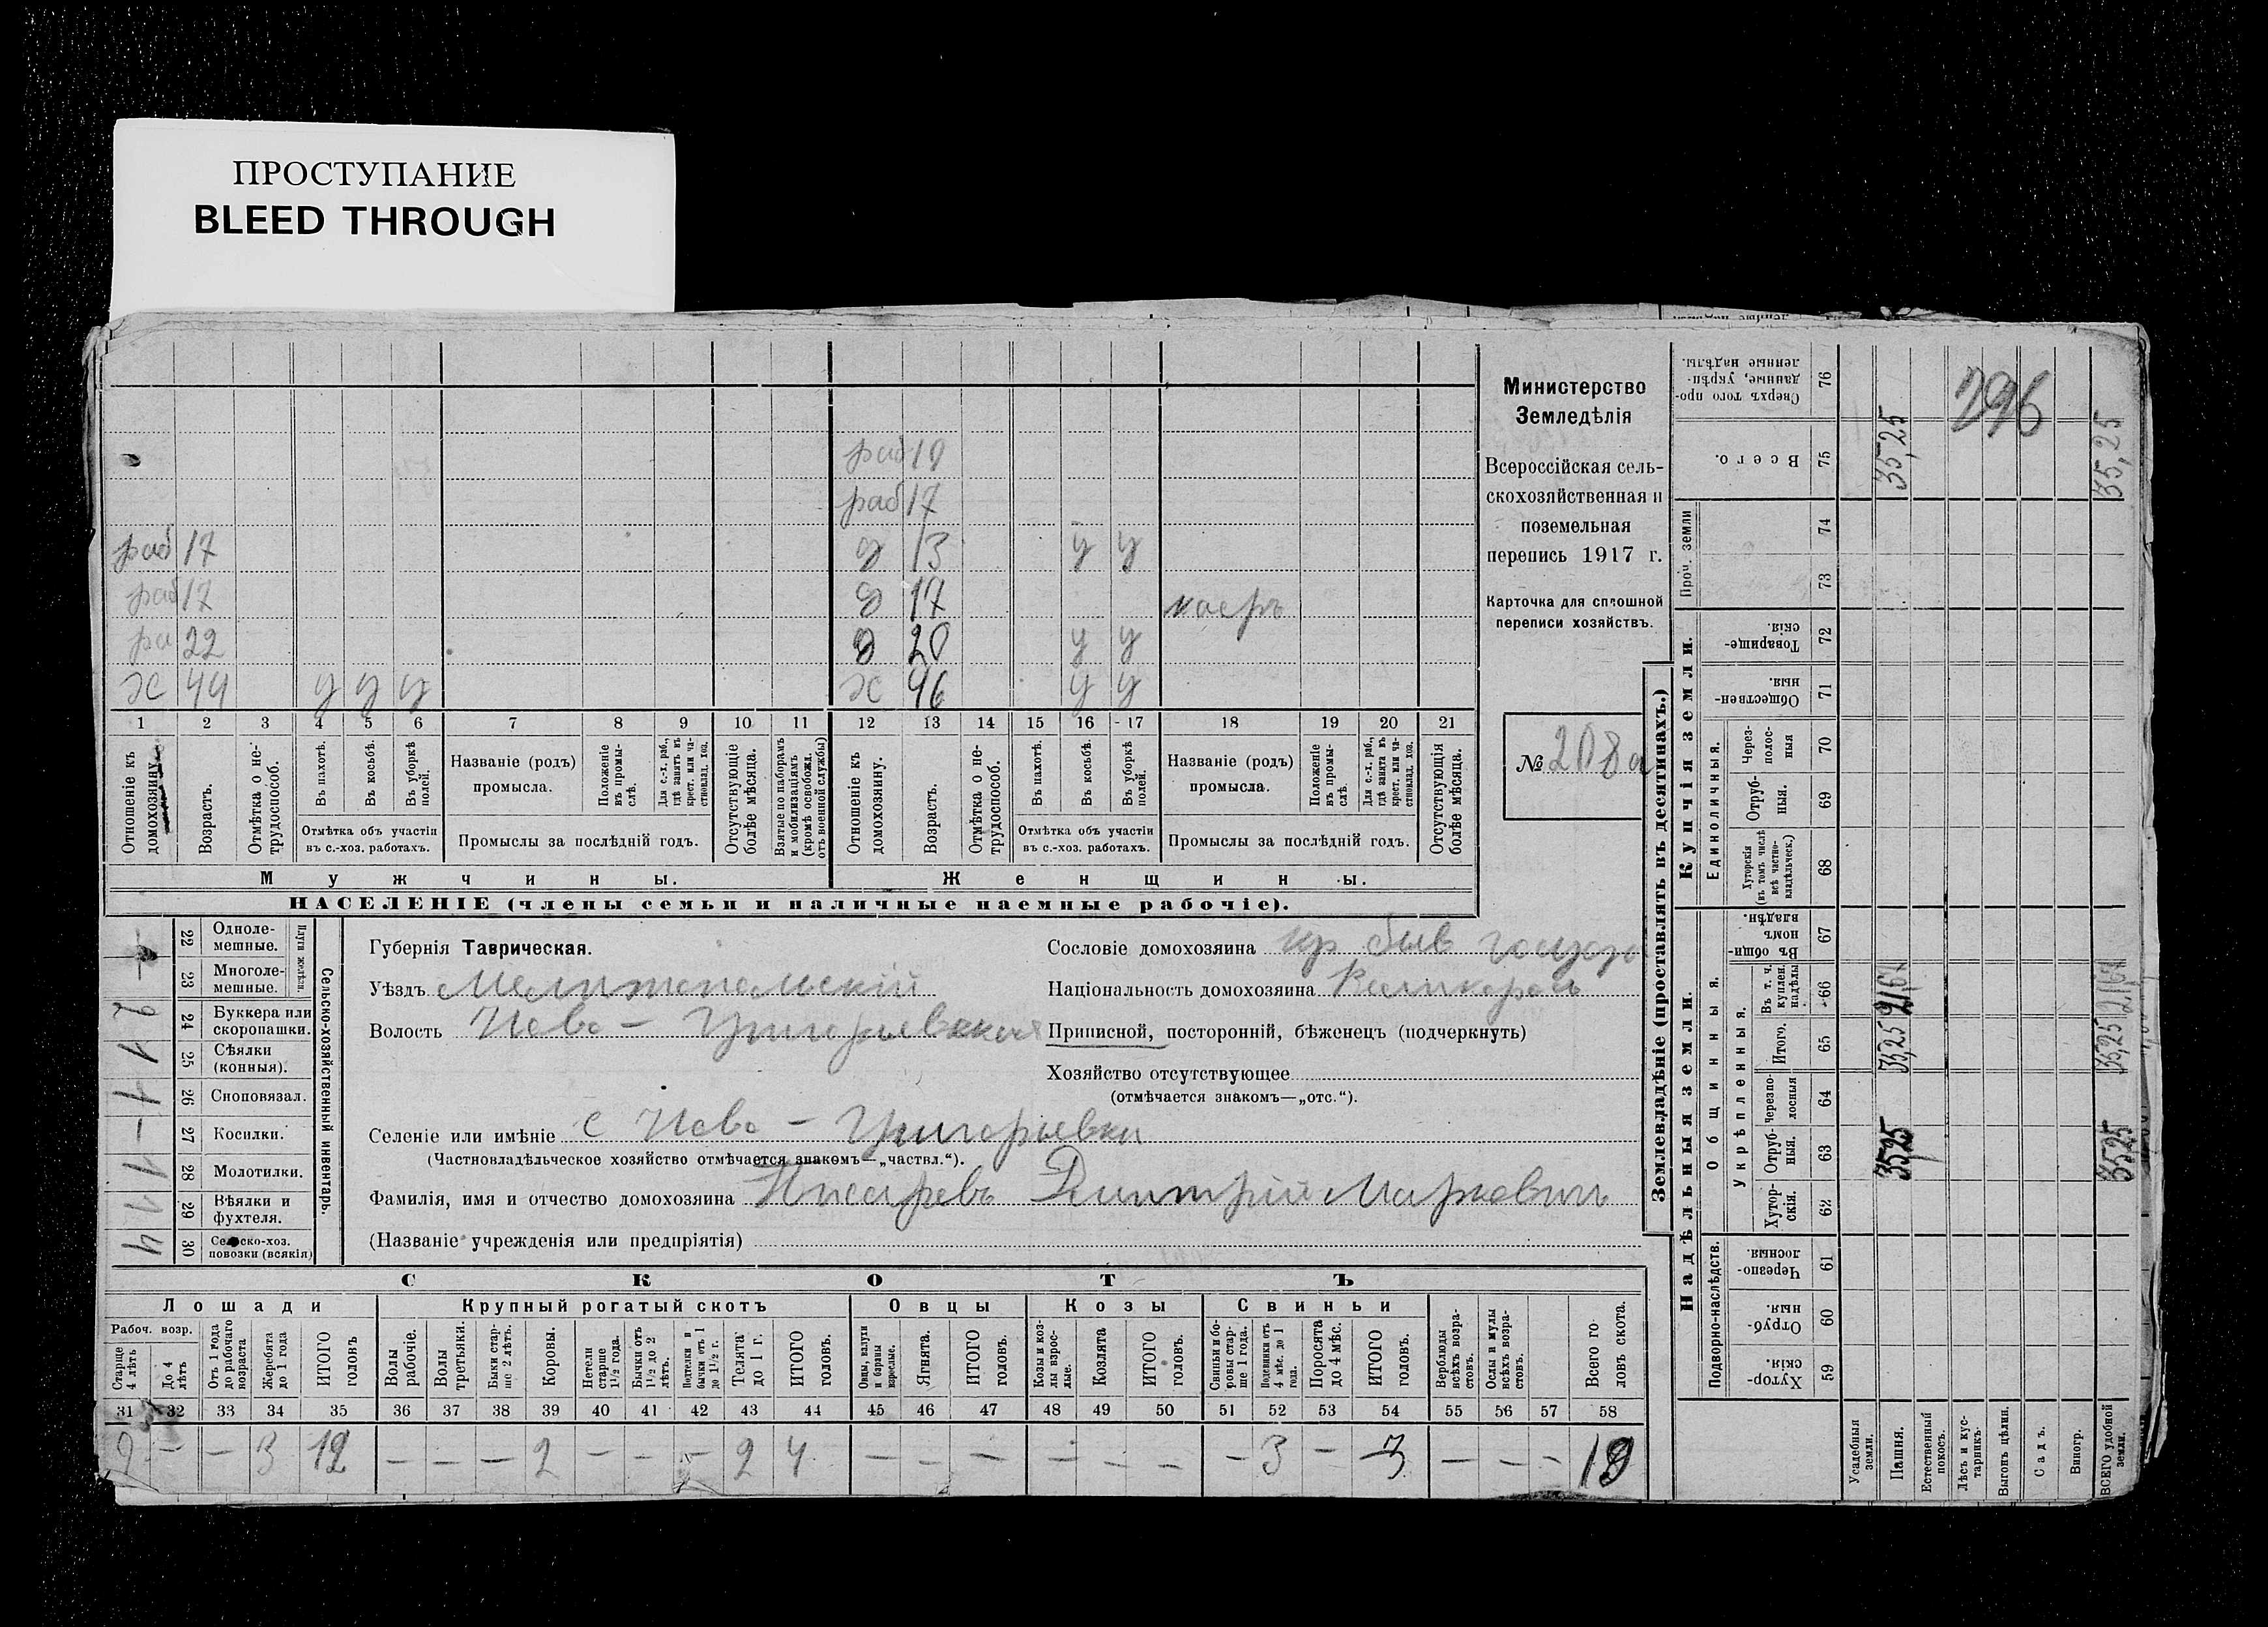 ПРОСТУПАНИЕ
BLEED THROUGH
раб 19
раб 17
раб 17 д 13 у у
раб 17 д 17
ра 22 д 20 у у
х 44 у у у х 46 у у
1 2 3 4 5 6 7 8 9 10 11 12 13 14 15 16 17 18 19 20 21
Отношеніе къ домохозяину.
Возрастъ.
Отмѣтка о не-трудоспособ.
Въ пахотѣ.
Въ косьбѣ.
Въ уборкѣ полей.
Отмѣтка объ участіи въ с.-хоз. работахъ.
Названіе (родъ) промысла.
Положеніе въ промы-слѣ.
Для с.-х. раб., гдѣ занятъ въ крест. или ча-стновлад. хоз.
Промыслы за послѣдній годъ.
Отсутствующіе болѣе мѣсяца.
Взятые по наборамъ и мобилизаціямъ (кромѣ освобожд. отъ военной службы)
Отношеніе къ домохозяину.
Возрастъ.
Отмѣтка о не-трудоспособ.
Въ пахотѣ.
Въ косьбѣ.
Въ уборкѣ полей.
Отмѣтка объ участіи въ с.-хоз. работахъ.
Названіе (родъ) промысла.
Положеніе въ промы-слѣ.
Для с.-х. раб., гдѣ занята въ крест. или ча-стновлад. хоз.
Промыслы за послѣдній годъ.
Отсутствующія болѣе мѣсяца.
Мужчины. Женщины.
НАСЕЛЕНІЕ (члены семьи и наличные наемные рабочіе).
Министерство
Земледѣлія
Всероссійская сель-
скохозяйственная и
поземельная
перепись 1917 г.
Карточка для сплошной
переписи хозяйствъ.
№ 208а
Плуги желѣзн.
22 Одноле-мешные.
23 Многоле-мешные.
2 24 Буккера или скоропашки.
1 25 Сѣялки (конныя).
1 26 Сноповязал.
– 27 Косилки.
1 28 Молотилки.
1 29 Вѣялки и фухтеля.
4 30 Сельско-хоз. повозки (всякія)
Сельско-хозяйственный инвентарь.
Губернія Таврическая.
Уѣздъ Мелитопольскій
Волость Ново – Григорьевская
Сословіе домохозяина кр быв госуда
Національность домохозяина Великоросъ
Приписной, посторонній, бѣженецъ (подчеркнуть)
Хозяйство отсутствующее
(отмѣчается знакомъ—„отс.“).
Селеніе или имѣніе с Ново – Григорьевка
(Частновладѣльческое хозяйство отмѣчается знакомъ—„частвл.“).
Фамилія, имя и отчество домохозяина Писаревъ Дмитрій Марковичъ
(Названіе учрежденія или предпріятія)
СКОТЪ
Лошади Крупный рогатый скотъ Овцы Козы Свиньи
Рабоч. возр.
Старше 4 лѣтъ
До 4 лѣтъ
Отъ 1 года до рабочаго возраста
Жеребята до 1 года
ИТОГО головъ
Волы рабочіе.
Волы третьяки.
Быки стар-ше 2 лѣтъ.
Коровы.
Нетели старше 1½ года.
Бычки отъ 1½ до 2 лѣтъ.
Подтелки и бычки отъ 1 до 1½ г.
Телята до 1 г.
ИТОГО головъ.
Овцы, валухи и бараны взрослые.
Ягнята.
ИТОГО головъ.
Козы и коз-лы взрос-лые.
Козлята
ИТОГО головъ.
Свиньи и бо-ровы стар-ше 1 года.
Подсвинки отъ 4 мѣс. до 1 года.
Поросята до 4 мѣс.
ИТОГО головъ.
Верблюды всѣхъ возра-стовъ.
Ослы и мулы всѣхъ возра-стовъ.
Всего го ловъ скота.
31 32 33 34 35 36 37 38 39 40 41 42 43 44 45 46 47 48 49 50 51 52 53 54 55 56 57 58
9 – – 3 12 – – – 2 – – – 2 4 – – – – – – – 3 – 3 – – – 19
Землевладѣніе (проставлять въ десятинахъ.)
Надѣльныя земли. Купчія земли.
Подворно-наслѣдств.
Общинныя.
Укрѣпленныя.
Единоличныя.
Проч. земли
76 Сверхъ того про-данные, укрѣп-ленные надѣлы.
75 Всего.
74
73
72 Товарище-скія.
71 Обществен-ныя.
70 Через-полос-ныя
69 Отруб-ныя.
68 Хуторскія (въ томъ числѣ всѣ частно-владѣльческ.)
67 Въ общи-номъ владѣн.
66 Въ т. ч. куплен. надѣлы
65 Итого.
64 Черезпо-лосныя
63 Отруб-ныя.
62 Хутор-скія.
61 Черезпо-лосныя.
60 Отруб-ныя.
59 Хутор-скія
Усадебныя земли.
Пашня.
Естественный покосъ.
Лѣсъ и кус-тарникъ.
Выгонъ цѣлин.
Садъ.
Виногр.
ВСЕГО удобной земли.
296
35,25
35,25
35,25
35,25
3525
3525